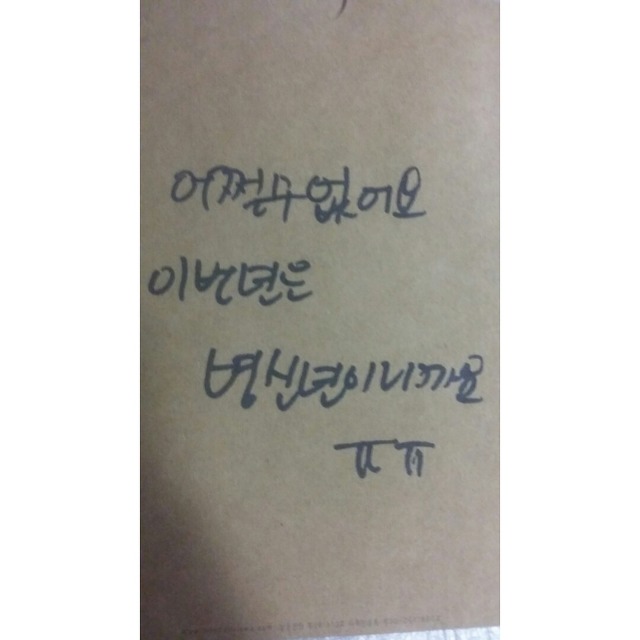 어쩔수없어요
이번년은
병신년이니까요
ㅠㅠ